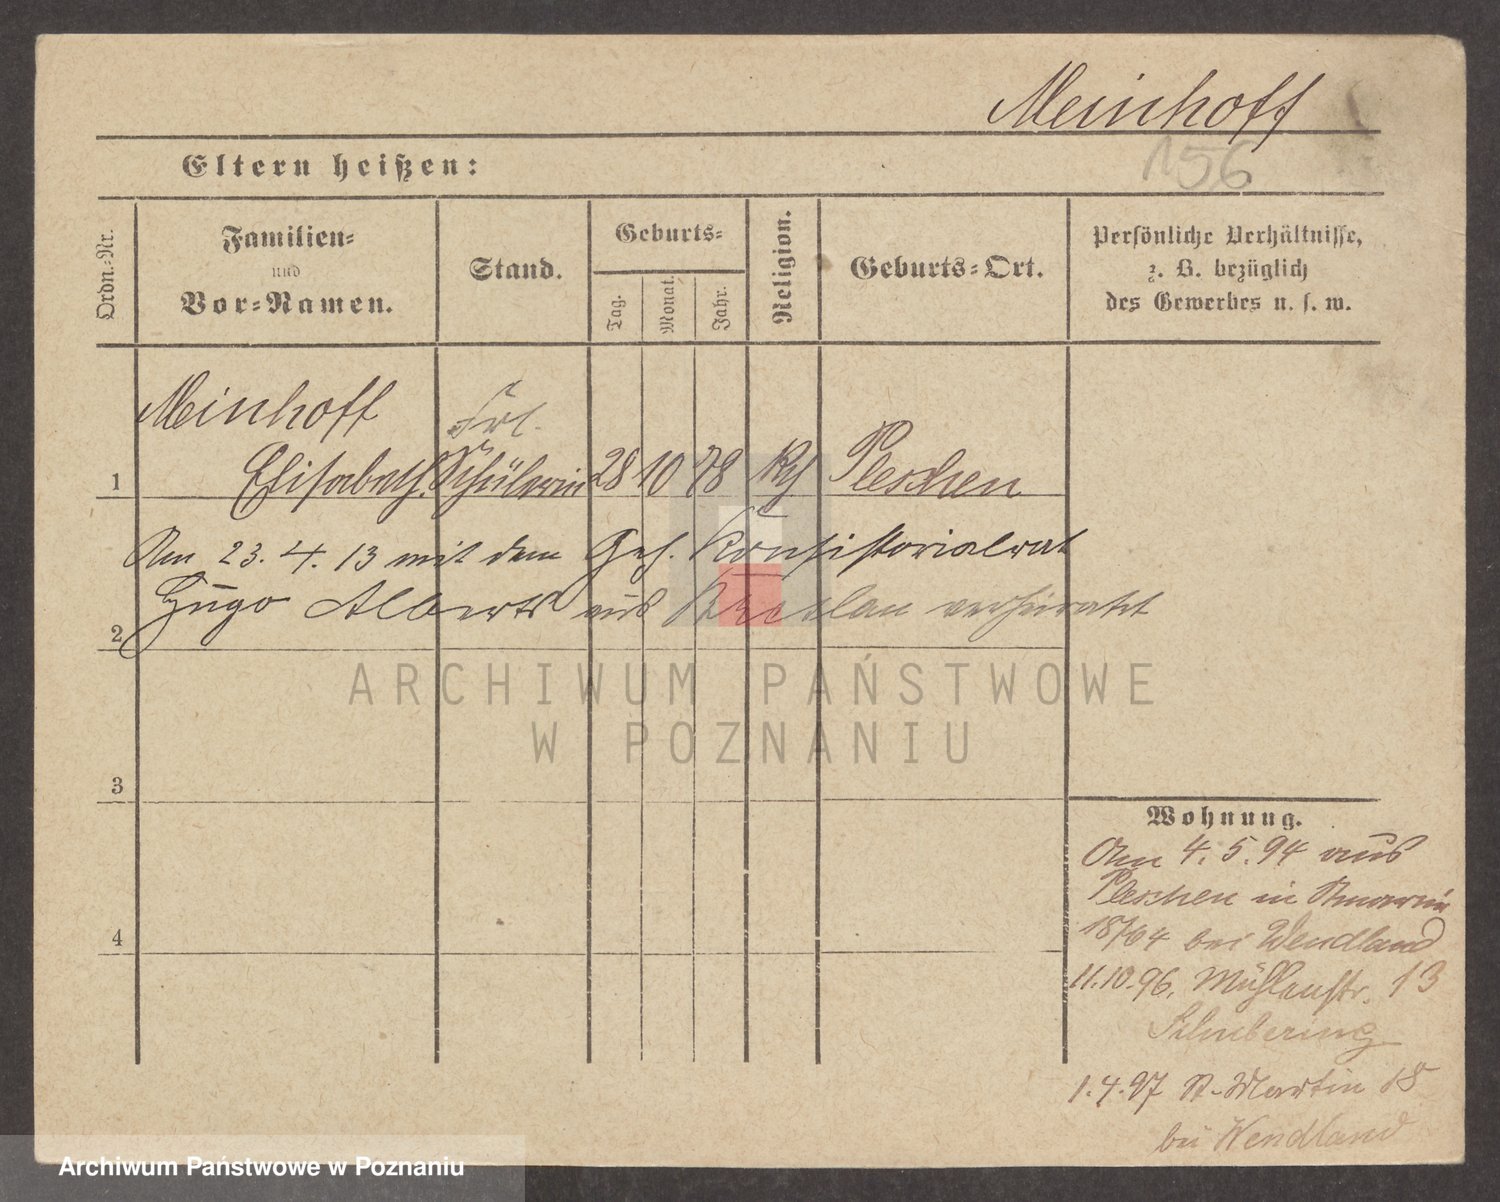 Meinhoff
156
Eltern heißen:
Ordn.-Nr.
Familien-
und
Vor-Namen.
Stand.
Geburts-
Tag.
Monat.
Jahr.
Religion.
Geburts-Ort.
Persönliche Verhältnisse,
z. B. bezüglich
des Gewerbes u. s. w.
Meinhoff Frl.
1 Elisabeth. Schülerin 28 10 78 Pleschen
Am 23. 4. 13 mit dem Geh. Konsistorialrat
Hugo Alberts aus Breslau verheiratet
2
3
4
Wohnung.
Am 4. 5. 94 aus
Pleschen in
bei Wendland
11.10.96. Mühlenstr. 13
1.4.97 St. Martin 18
bei Wendland
ARCHIWUM PAŃSTWOWE
W POZNANIU
Archiwum Państwowe w Poznaniu